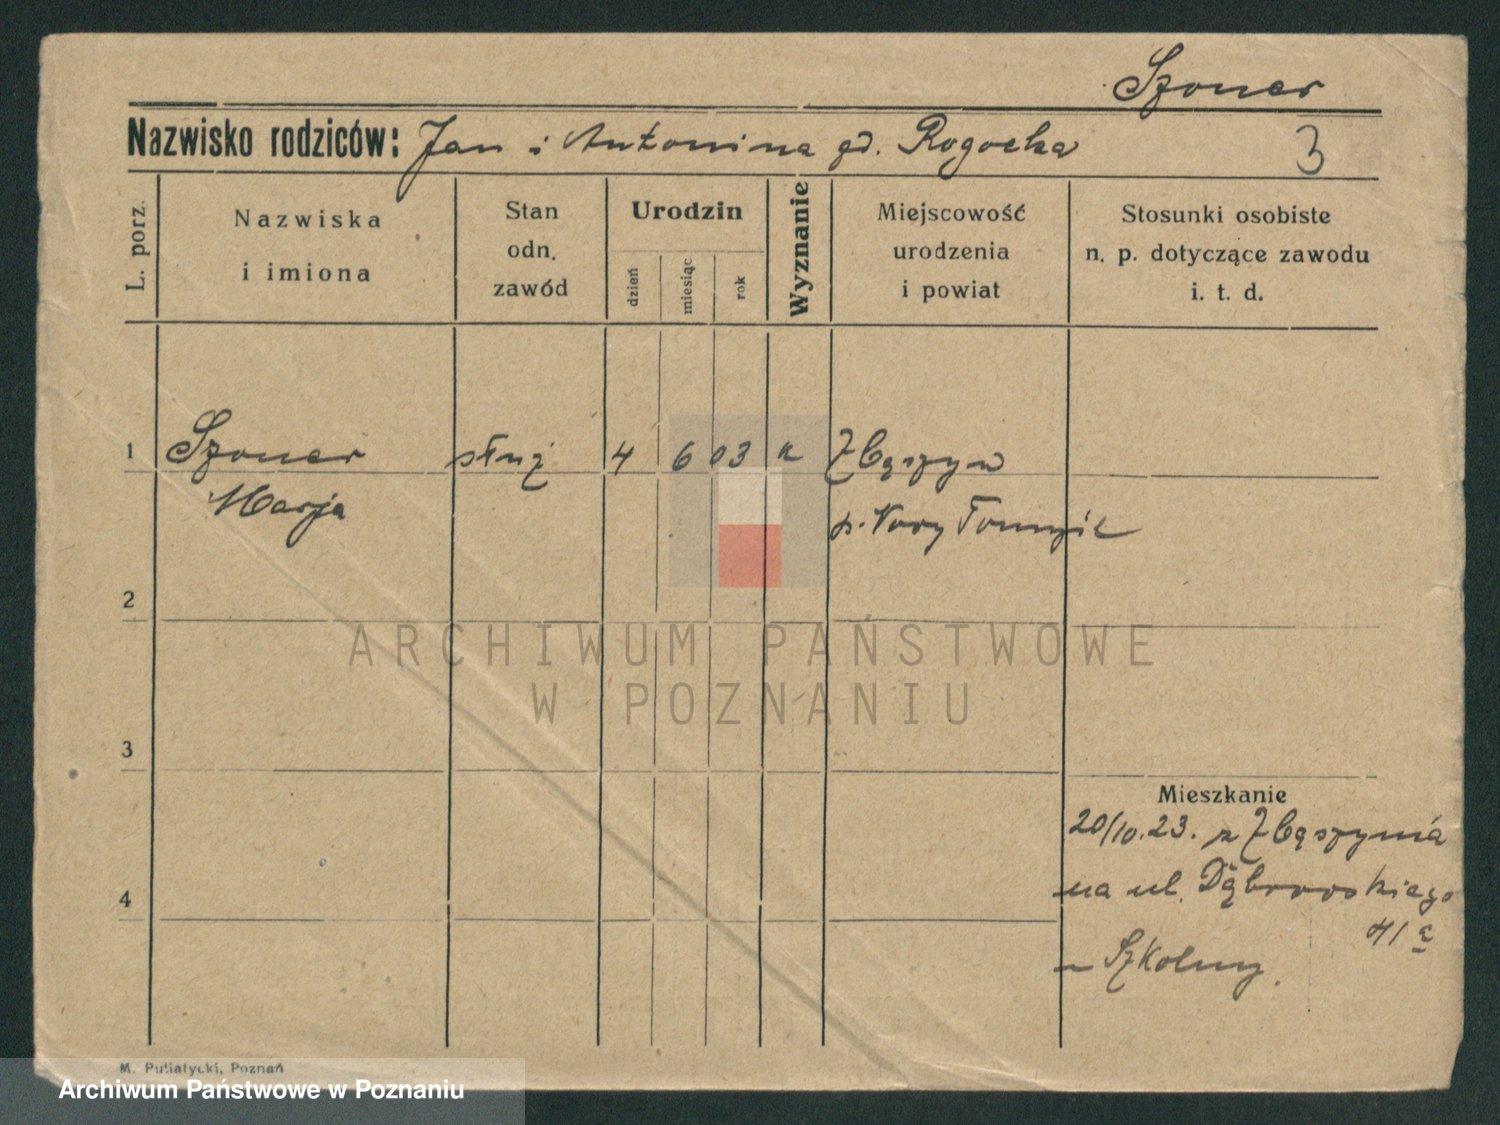 Szoner
Nazwisko rodziców: Jan i Antonina gd. Rogocka 3
L. porz.
Nazwiska
i imiona
Stan
odn.
zawód
Urodzin
dzień
miesiąc
rok
Wyznanie
Miejscowość
urodzenia
i powiat
Stosunki osobiste
n. p. dotyczące zawodu
i. t. d.
1 Szoner służ 4 6 03 k Zbąszyn
Marja p. Nowy Tomyśl
2
3
Mieszkanie
20/10.23. z Zbąszynia
na ul. Dąbrowskiego
4
41
u Szkolny.
ARCHIWUM PAŃSTWOWE
W POZNANIU
M. Putiatycki, Poznań
Archiwum Państwowe w Poznaniu